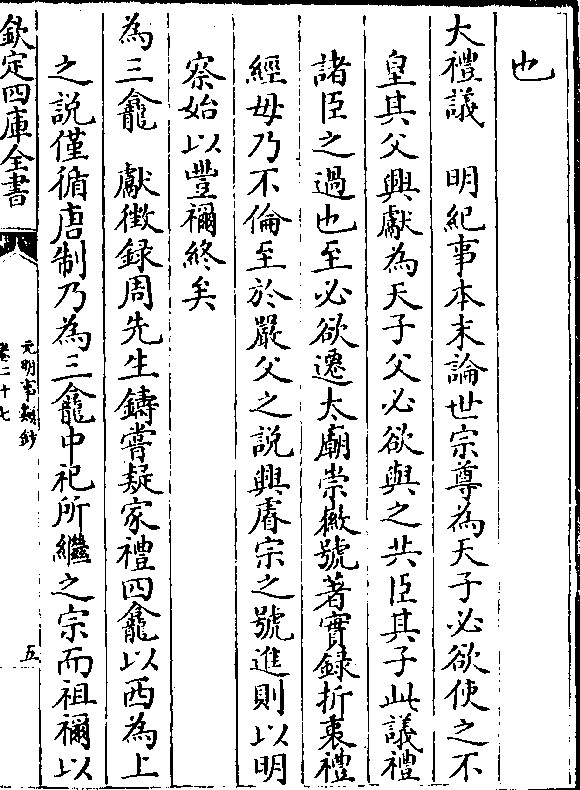 也
大禮議　明紀事本末論世宗尊為天子必欲使之不
皇其父興獻為天子父必欲與之共臣其子此議禮
諸臣之過也至必欲遷太廟崇徽號著實録折衷禮
經毋乃不倫至於嚴父之説興睿宗之號進則以明
察始以豐禰終矣
為三龕　獻徴録周先生鑄嘗疑家禮四龕以西為上
之説僅循唐制乃為三龕中祀所繼之宗而祖禰以
欽定四庫全書
元明事類鈔
卷二十七
五